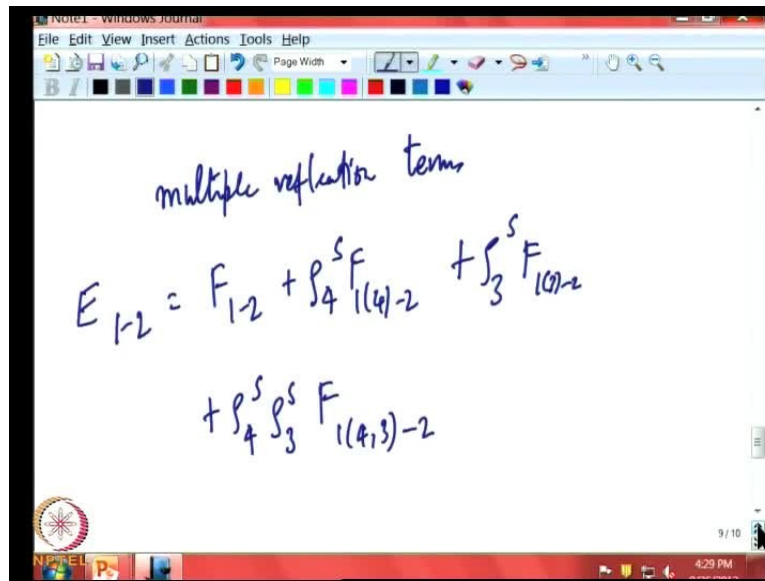 Note1 - Windows Journal
File Edit View Insert Actions Tools Help
Page Width
B I
multiple reflection terms
E₁₋₂ = F₁₋₂ + ρ₄ˢ F₁₍₄₎₋₂ + ρ₃ˢ F₁₍₃₎₋₂
+ ρ₄ˢ ρ₃ˢ F₁₍₄,₃₎₋₂
9 / 10
NPTEL
4:29 PM